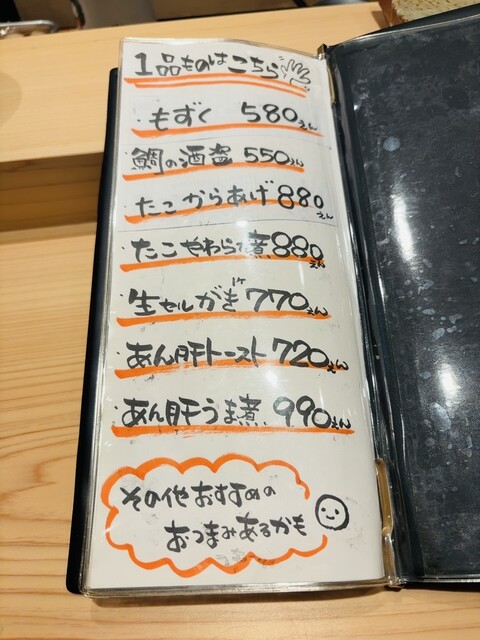 1品ものはこちら
・もずく 580えん
・鯛の酒盗 550えん
・たこからあげ 880えん
・たこやわらか煮 880えん
・生セルがき 1ケ 770えん
・あん肝トースト 720えん
・あん肝うま煮 990えん
その他おすすめの
おつまみあるかも